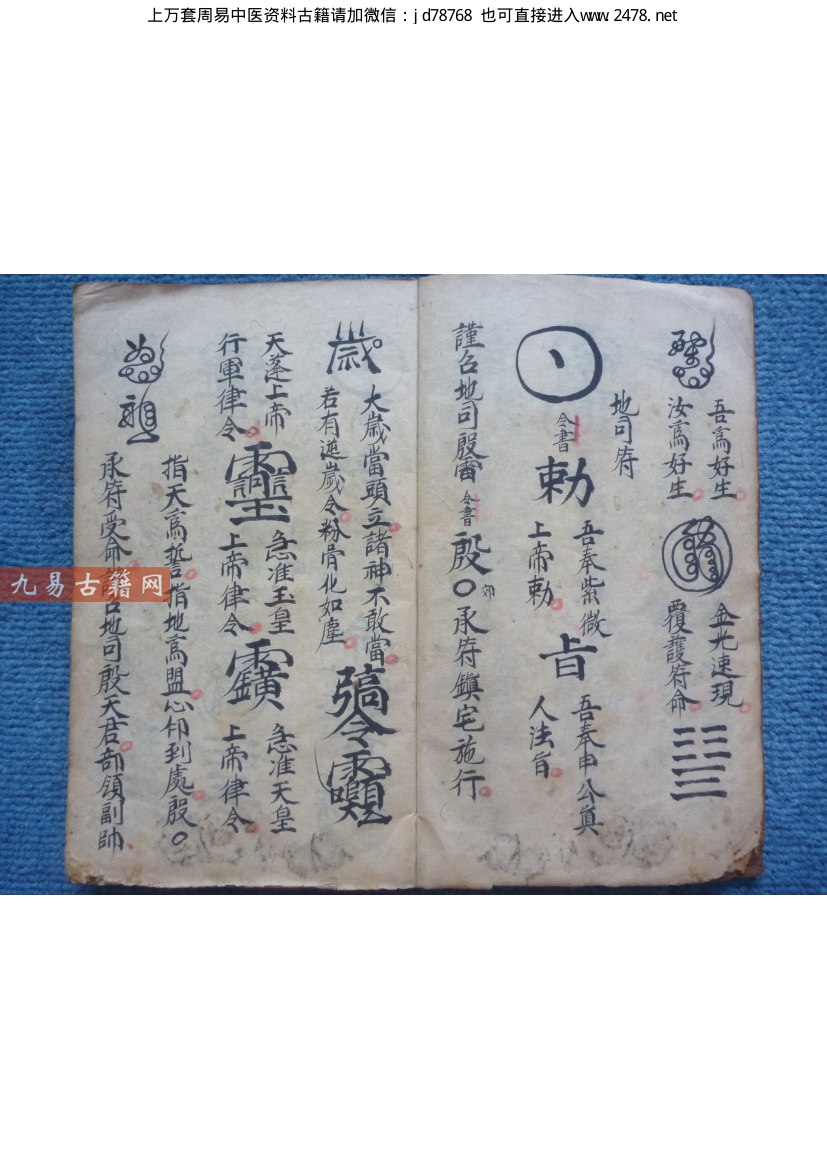 上万套周易中医资料古籍请加微信：jd78768 也可直接进入www.2478.net
吾爲好生
汝爲好生
金光速現
覆護符命
地司符
令書
勅
吾奉紫微
上帝勅
旨
吾奉申公真
人法旨
謹召地司殷雷 令書 殷 承符鎮宅施行
歲
太歲當頭立諸神不敢當
若有逆歲令粉骨化如塵
天蓬上帝
行軍律令
急准玉皇
上帝律令
急准天皇
上帝律令
指天爲誓指地爲盟心印到處殷
承符受命 召地司殷天君部領副帥
九易古籍网